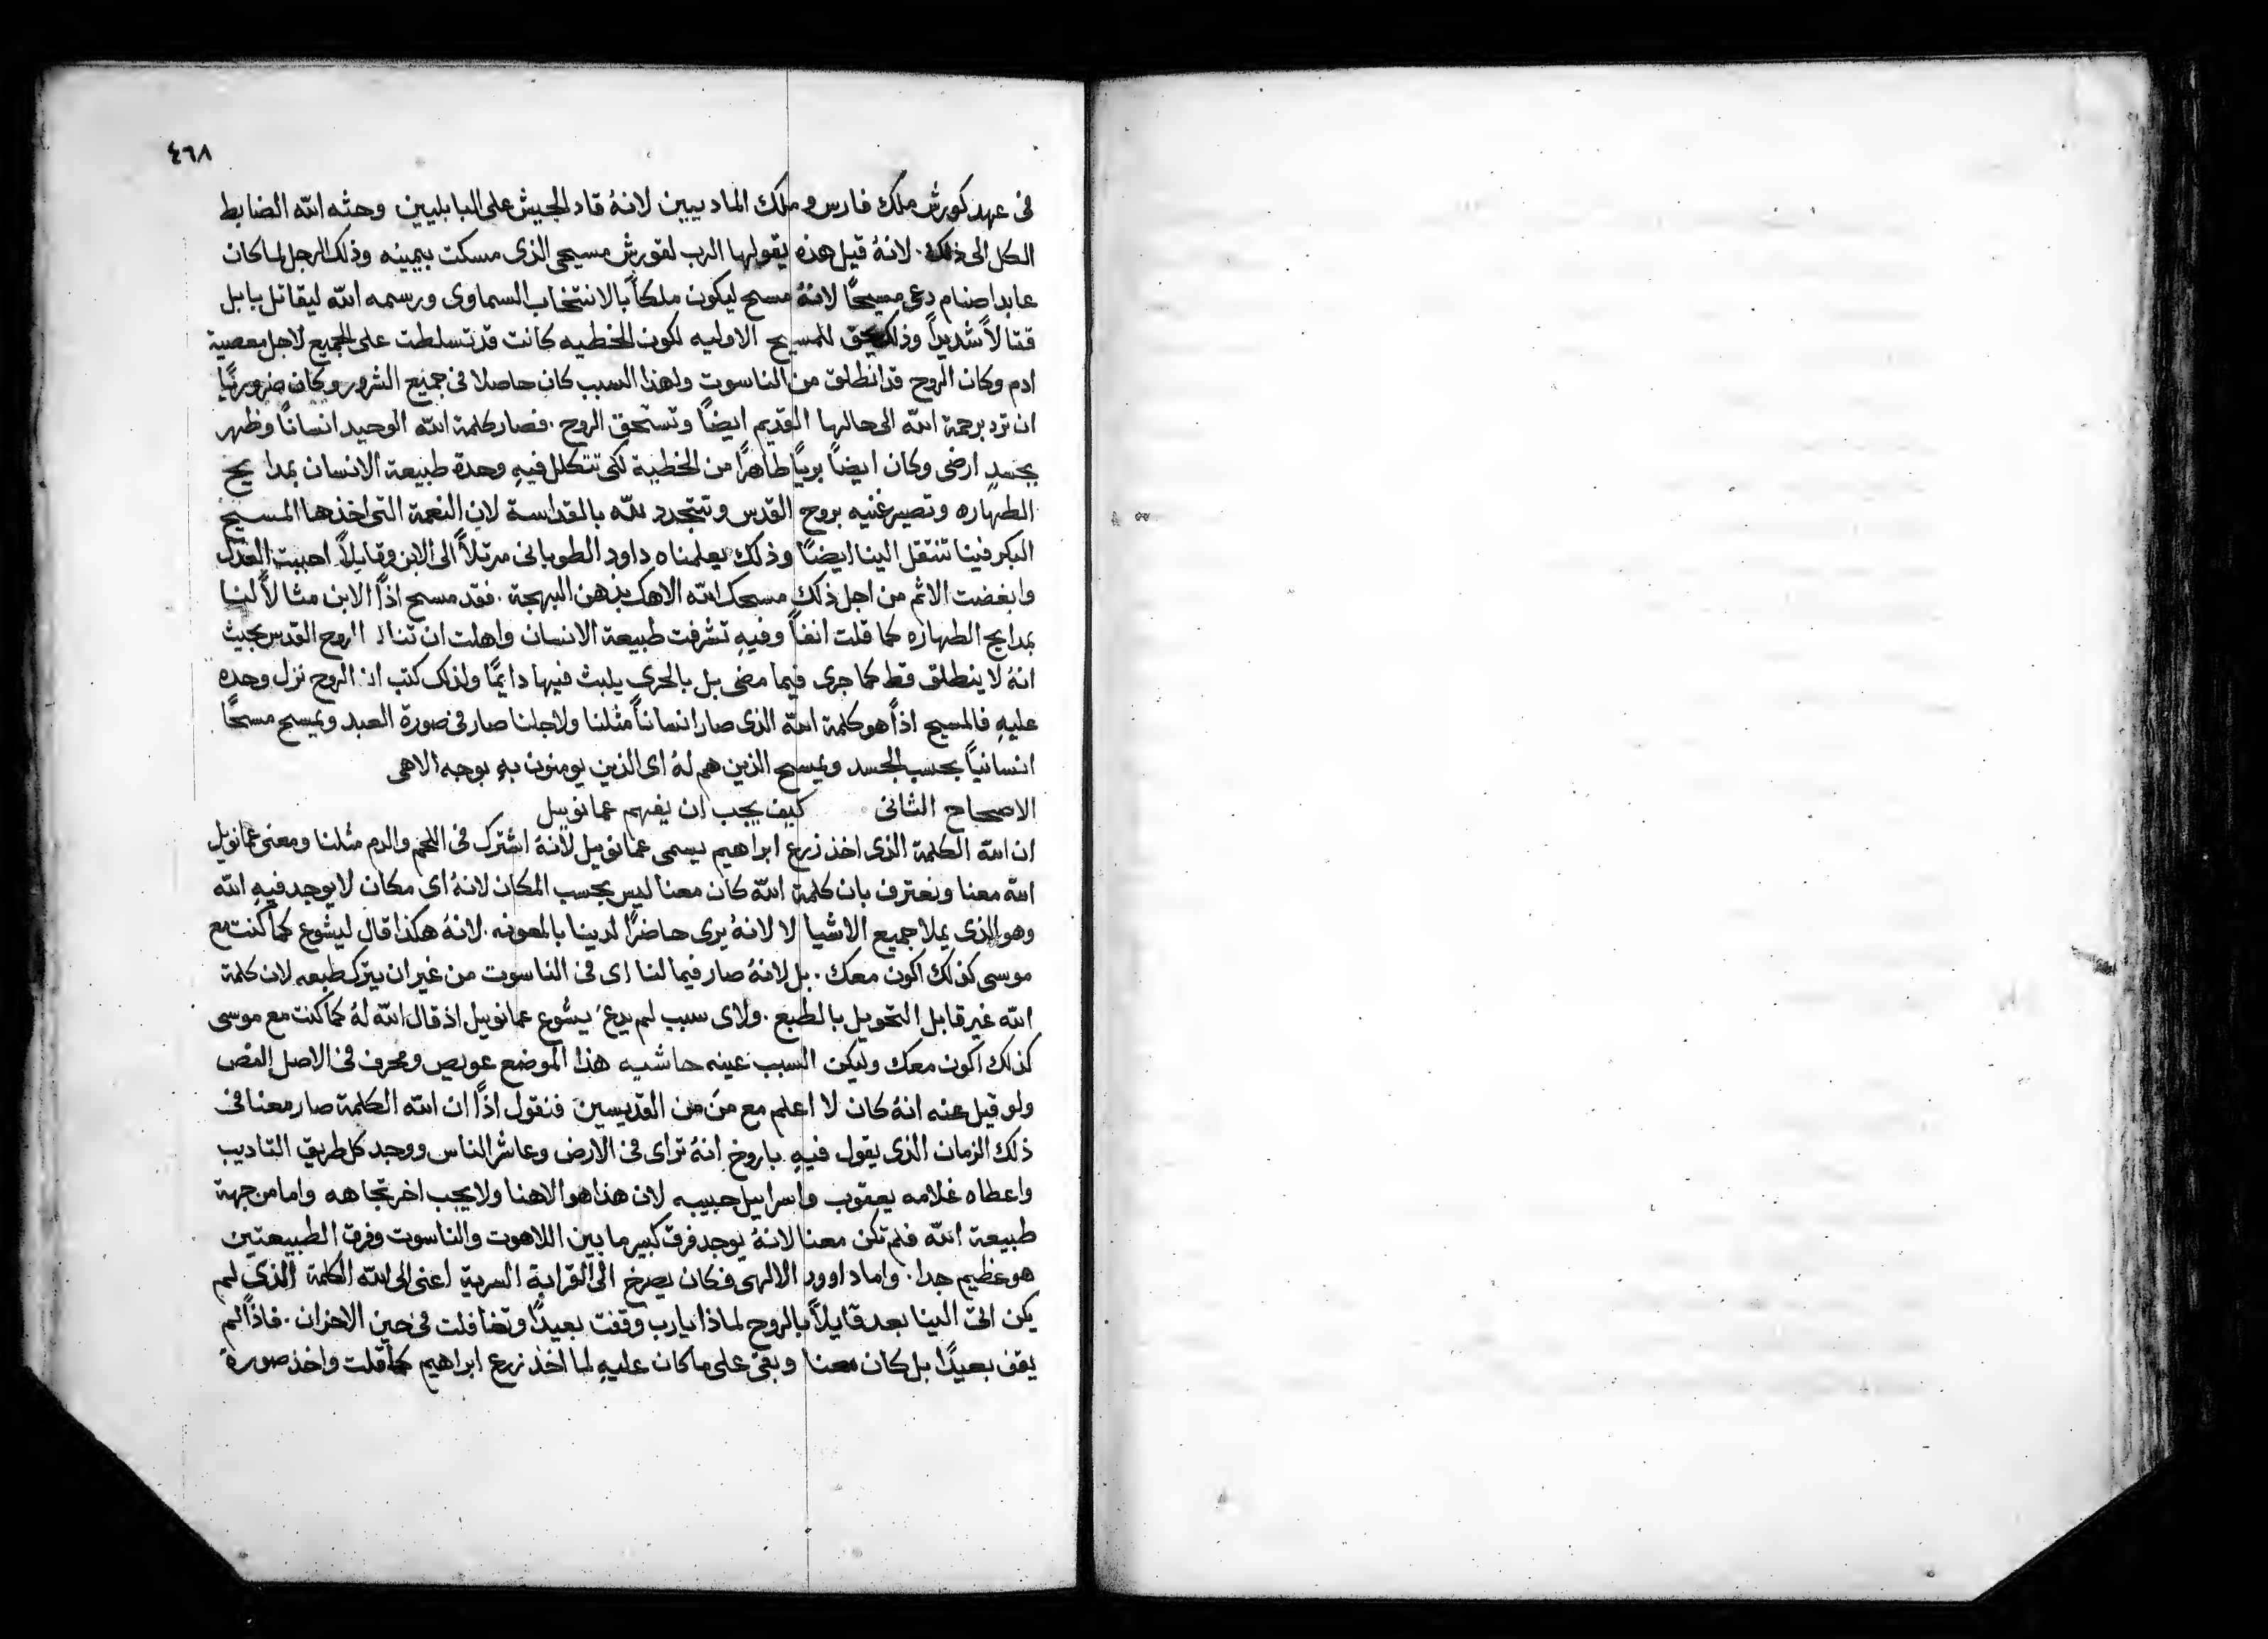 ٤٦٨
فى عهد كورش ملك فارس وملك الماديين لانهُ قاد الجيش على البابليين وحثه الله الضابط
الكل الى ذلك. لانهُ قيل هذه يقولها الرب لقورش مسيحى الذى مسكت بيمينه وذلك الرجل لما كان
عابد اصنام دعى مسيحًا لانهُ مسح ليكون ملكاً بالانتخاب السماوى ورسمه الله ليقاتل بابل
قتالاً شديداً وذلك يحق للمسيح الاوليه لكون الخطيه كانت قد تسلطت على الجميع لاجل معصية
ادم وكان الروح قد انطلق من الناسوت ولهذا السبب كان حاصلا فى جميع الشرور وكان ضروريًا
ان ترد برحمة الله الى حالها القديم ايضًا وتستحق الروح. فصار كلمة الله الوحيد انسانًا وظهر
بجسدٍ ارضى وكان ايضاً بريًا طاهرًا من الخطية لكى تتكلل فيهِ وحدة طبيعة الانسان بمدايح
الطهاره وتصير غنيه بروح القدس وتتجدد لله بالقداسة لان النعمة التى اخذها المسيح
البكر فينا تنتقل الينا ايضًا وذلك يعلمناه داود الطوبانى مرتلاً الى الابن وقايلاً احببت العدل
وابغضت الاثم من اجل ذلك مسحك الله الاهك بدهن البهجة. فقد مسح اذًا الابن مثالاً لنا
بمدايح الطهاره كما قلت انفاً وفيهِ تشرفت طبيعة الانسان واهلت ان تنال الروح القدس بحيث
انهُ لا ينطلق قط كما جرى فيما مضى بل بالحرى يلبث فيها دايمًا ولذلك كتب ان الروح نزل وحده
عليهِ فالمسيح اذاً هو كلمة الله الذى صار انساناً مثلنا ولاجلنا صار فى صورة العبد ويمسح مسحًا
انسانيًا بحسب الجسد ويمسح الذين هم لهُ اى الذين يومنون بهِ بوجه الاهى
الاصحاح الثانى كيف يجب ان يفهم عمانوييل
ان الله الكلمة الذى اخذ زرع ابراهيم يسمى عمانوييل لانهُ اشترك فى اللحم والدم مثلنا ومعنى عمانويل
الله معنا ونعترف بان كلمة الله كان معنا ليس بحسب المكان لانهُ اى مكان لا يوجد فيهِ الله
وهو الذى يملا جميع الاشيا لا لانهُ يرى حاضرًا لدينا بالمعونه. لانهُ هكذا قال ليشوع كما كنت مع
موسى كذلك اكون معك. بل لانهُ صار فيما لنا اى فى الناسوت من غير ان يترك طبعه لان كلمة
الله غير قابل التحويل بالطبع. ولاى سبب لم يدعَ يشوع عمانوييل اذ قال الله لهُ كما كنت مع موسى
كذلك اكون معك وليكن السبب عينه حاشيه هذا الموضع عويص ومحرف فى الاصل النص
ولو قيل عنه انهُ كان لا اعلم مع مَن من القديسين فنقول اذًا ان الله الكلمة صار معنا فى
ذلك الزمان الذى يقول فيهِ باروخ انهُ تراى فى الارض وعاشر الناس ووجد كل طريق التاديب
واعطاه غلامه يعقوب واسراييل حبيبه لان هذا هو الاهنا ولا يجب اخر تجاهه واما من جهة
طبيعة الله فلم تكن معنا لانهُ يوجد فرق كبير ما بين اللاهوت والناسوت وفرق الطبيعتين
هو عظيم جدا. واما داوود الالهى فكان يصرخ الى القرابة السرية اعنى الى الله الكلمة الذى لم
يكن اتى الينا بعد قايلاً بالروح لماذا يارب وقفت بعيدًا وتغافلت فى حين الاحزان. فاذاً لم
يقف بعيدًا بل كان معنا وبقى على ما كان عليهِ لما اخذ زرع ابراهيم كما قلت واخذ صورة